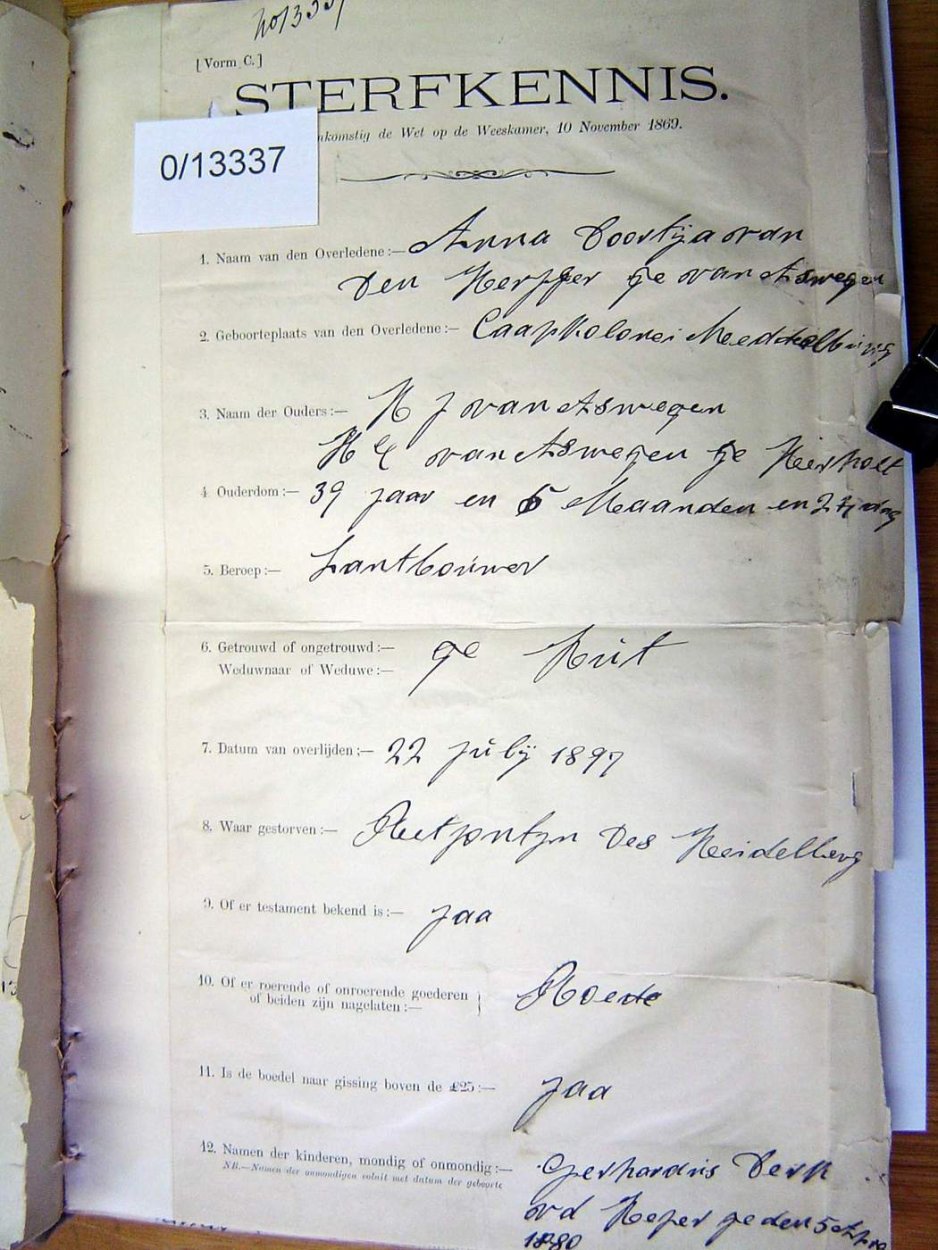 No 13337
[Vorm C.]
STERFKENNIS.
nkomstig de Wet op de Weeskamer, 10 November 1869.
0/13337
1. Naam van den Overledene :— Anna Doortija van
Den Heyfer ge van Aswegen
2. Geboorteplaats van den Overledene :— Caapkolonei Meeddelburg
3. Naam der Ouders :— van Aswegen
van Aswegen ge
4 Ouderdom :— 39 jaar en 5 Maanden en dag
5. Beroep :— Lantbouwer
6. Getrouwd of ongetrouwd :— ge
Weduwnaar of Weduwe :—
7. Datum van overlijden :— 22 julij 1897
8. Waar gestorven :— Des Heidelberg
9. Of er testament bekend is :— jaa
10. Of er roerende of onroerende goederen
of beiden zijn nagelaten :—
11. Is de boedel naar gissing boven de £25 :— jaa
12. Namen der kinderen, mondig of onmondig :— Gerhardus Derk
NB.—Namen der onmondigen voluit met datum der geboorte
vd ge den 5
1880